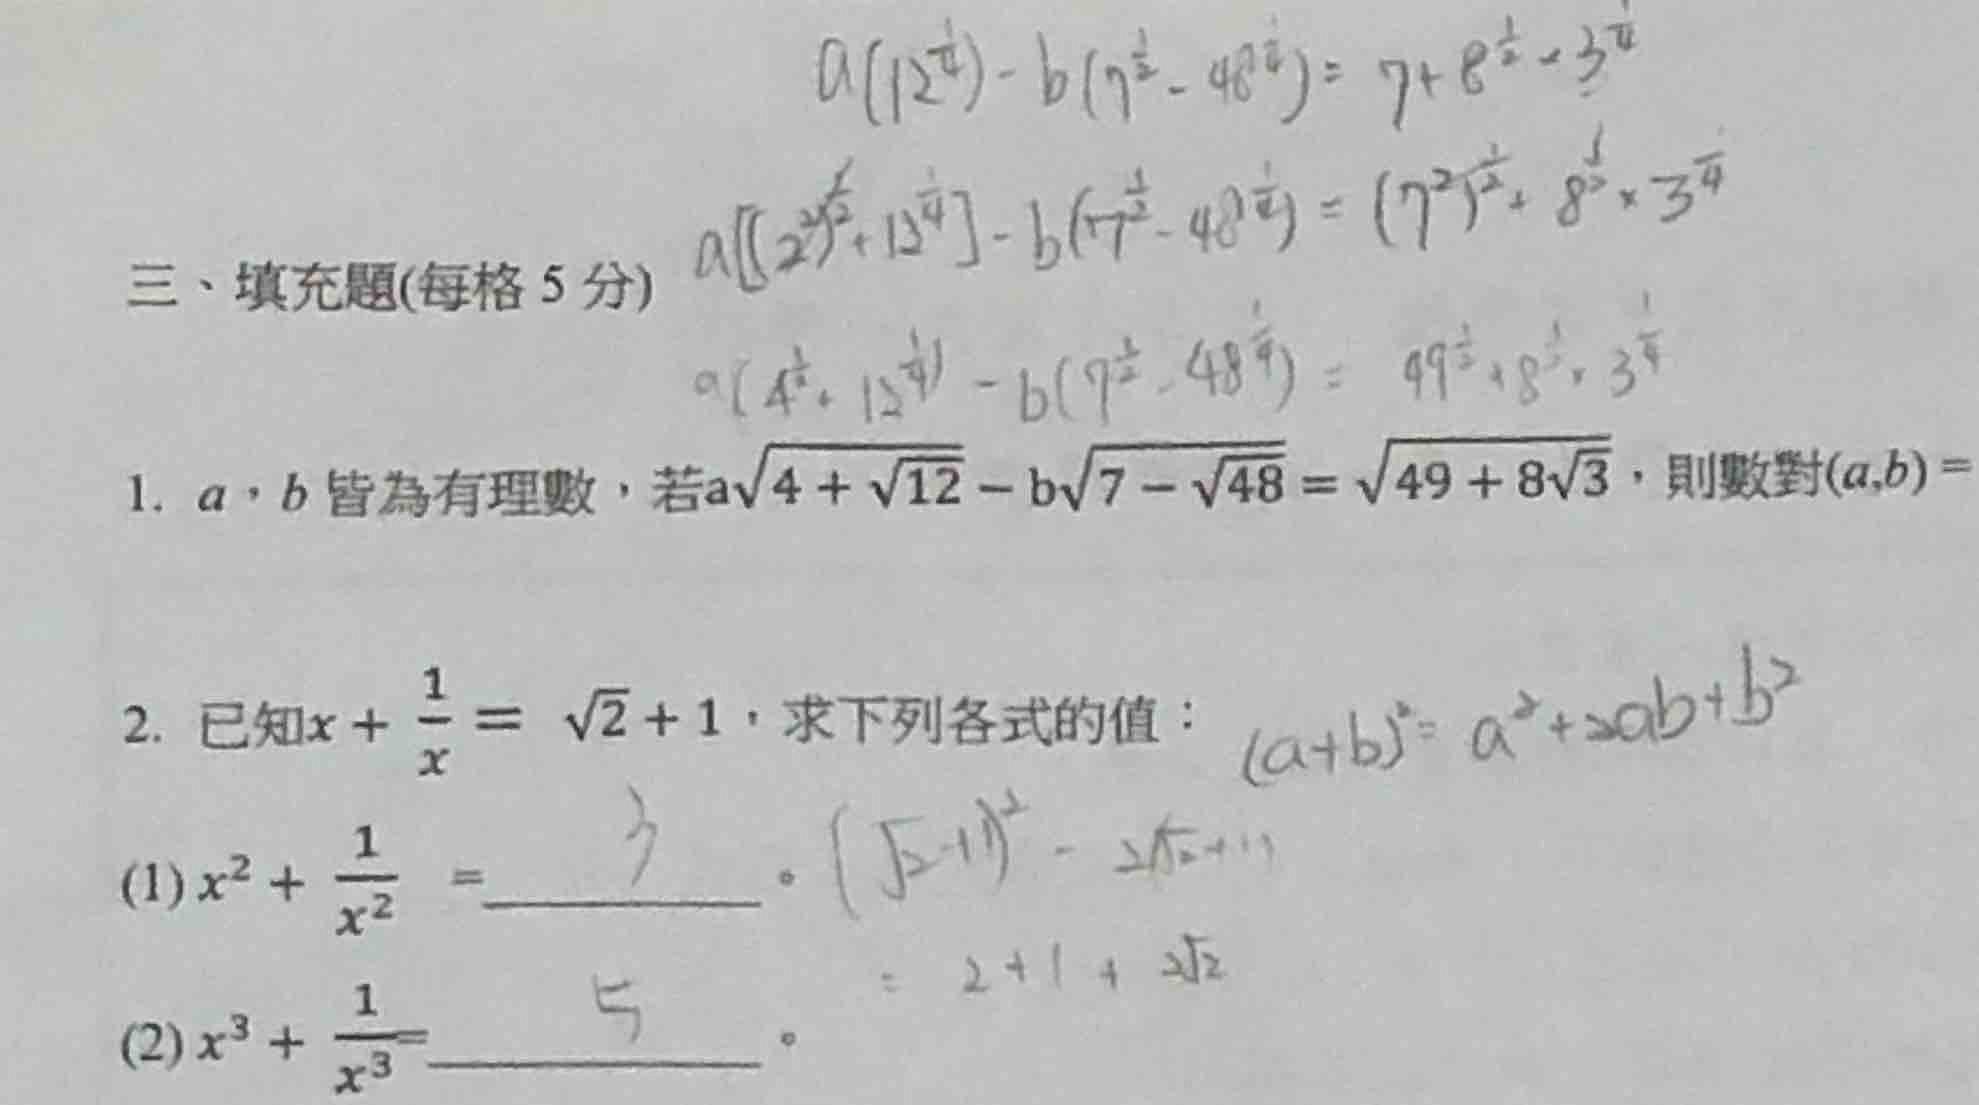 a(12^{1/4}) - b(7^{1/2} - 48^{1/4}) = 7 + 8^{1/2} × 3^{1/4}
a[(2²)^{1/2} + 12^{1/4}] - b(7^{1/2} - 48^{1/4}) = (7²)^{1/2} + 8^{1/2} × 3^{1/4}
三、填充題(每格 5 分)
a(4^{1/2} + 12^{1/4}) - b(7^{1/2} - 48^{1/4}) = 49^{1/2} + 8^{1/2} × 3^{1/4}
1. a，b 皆為有理數，若a√(4 + √12) − b√(7 − √48) = √(49 + 8√3)，則數對(a,b) =
2. 已知x + 1/x = √2 + 1，求下列各式的值： (a+b)² = a² + 2ab + b²
(1) x² + 1/x² = 3 。 (√2+1)² - 2(√2+1)
= 2 + 1 + 2√2
(2) x³ + 1/x³ = 5 。